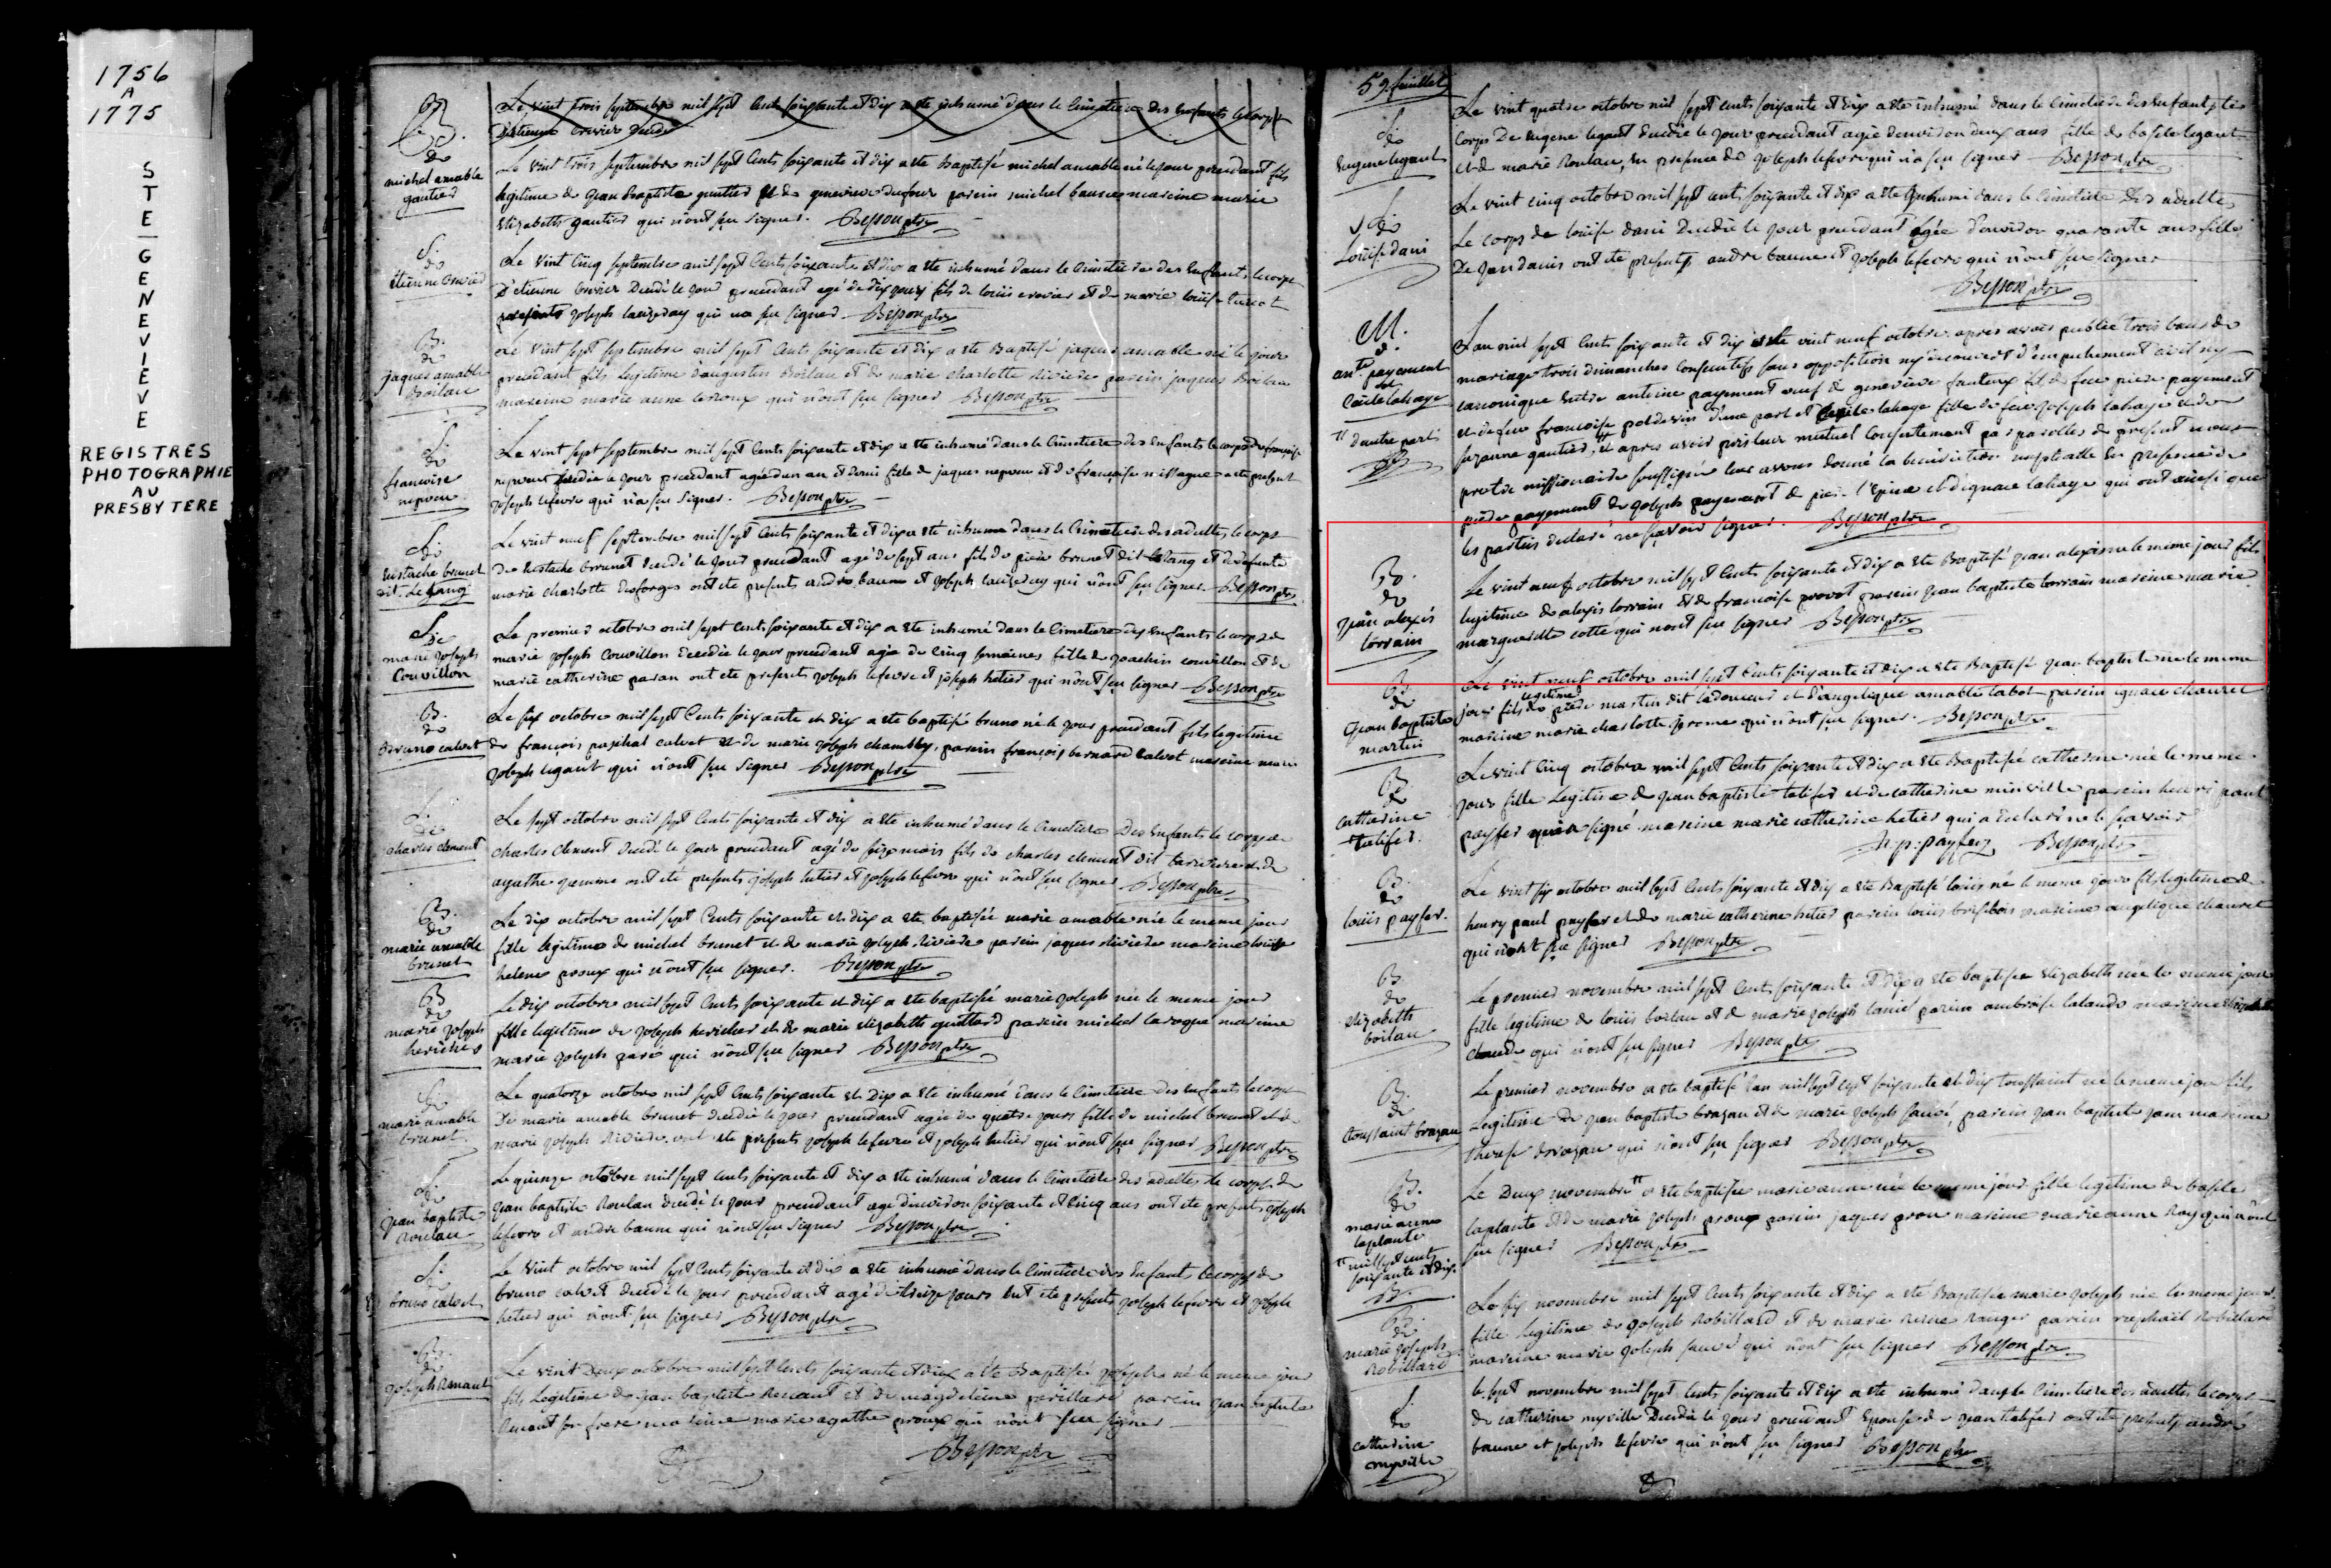 1756
A
1775
STE-GENEVIEVE
REGISTRES
PHOTOGRAPHIE
AU
PRESBYTERE
Le vint trois septembre mil sept cents soixante et dix a ete inhumé dans le Cimetiere des enfants le corps
D'etienne
B.
de
michel amable
gautier
Le vint trois septembre mil sept cents soixante et dix a ete baptisé michel amable né le jour precedant fils
legitime de jean baptiste gautier et de genevieve dufour parein michel baune mareine marie
elizabeth gautier qui n'ont sçu signer. Besson ptre
S.
de
etienne
Le vint cinq septembre mil sept cents soixante et dix a ete inhumé dans le Cimetiere des enfants le corps
D'etienne decedé le jour precedant agé de dix jours fils de louis et de marie louise turcot
joseph qui n'a sçu signer. Besson ptre
B.
de
jaques amable
Boileau
Le vint sept septembre mil sept cents soixante et dix a ete Baptisé jaques amable né le jour
precedant fils legitime d'augustin Boileau et de marie charlotte Riviere parein jaques Boileau
mareine marie anne qui n'ont sçu signer Besson ptre
S.
de
francoise
nepveu
Le vint sept septembre mil sept cents soixante et dix a ete inhumé dans le Cimetiere des enfants le corps de francoise
nepveu decedée le jour precedant agée d'un an et demi fille de jaques nepveu et de françoise a ete present
joseph lefevre qui n'a sçu signer. Besson ptre
S.
de
Eustache brunet
dit Letang
Le vint neuf septembre mil sept cents soixante et dix a ete inhumé dans le Cimetiere des adultes le corps
de Eustache brunet decedé le jour precedant agé de sept ans fils de pierre brunet dit letang et de defunte
marie charlotte desforges ont ete presents andre baune et joseph qui n'ont sçu signer. Besson ptre
S.
de
marie joseph
Couvillon
Le premier octobre mil sept cents soixante et dix a ete inhumé dans le Cimetiere des enfants le corps de
marie joseph Couvillon decedée le jour precedant agée de cinq semaines fille de joachin couvillon et de
marie catherine paran ont ete presents joseph lefevre et joseph hetier qui n'ont sçu signer Besson ptre
B.
de
Bruno calvet
Le six octobre mil sept cents soixante et dix a ete baptisé bruno né le jour precedant fils legitime
de françois paschal calvet et de marie joseph chambly, parein françois bernard calvet mareine marie
joseph legaut qui n'ont sçu signer Besson ptre
S.
de
charles clement
Le sept octobre mil sept cents soixante et dix a ete inhumé dans le Cimetiere des enfants le corps de
charles clement decedé le jour precedant agé de seize mois fils de charles clement dit lariviere et de
agathe ont ete presents joseph hetier et joseph lefevre qui n'ont sçu signer Besson ptre
B.
de
marie amable
brunet
Le dix octobre mil sept cents soixante et dix a ete baptisée marie amable née le meme jour
fille legitime de michel brunet et de marie joseph Riviere parein jaques riviere mareine louise
helene proux qui n'ont sçu signer. Besson ptre
B.
de
marie joseph
Le dix octobre mil sept cents soixante et dix a ete baptisée marie joseph née le meme jour
fille legitime de joseph et de marie elizabeth parein michel laroque mareine
marie joseph paré qui n'ont sçu signer Besson ptre
S.
de
marie amable
brunet
Le quatorze octobre mil sept cents soixante et dix a ete inhumé dans le Cimetiere des enfants le corps
de marie amable brunet decedée le jour precedant agée de quatre jours fille de michel brunet et de
marie joseph Riviere ont ete presents joseph lefevre et joseph hetier qui n'ont sçu signer Besson ptre
S.
de
jean baptiste
Roulau
Le quinze octobre mil sept cents soixante et dix a ete inhumé dans le Cimetiere des adultes le corps de
jean baptiste Roulau decedé le jour precedant agé d'environ soixante et cinq ans ont ete presents joseph
lefevre et andre baune qui n'ont sçu signer Besson ptre
S.
de
bruno calvet
Le vint octobre mil sept cents soixante et dix a ete inhumé dans le Cimetiere des enfants le corps de
bruno calvet decedé le jour precedant agé de treize jours ont ete presents joseph lefevre et joseph
hetier qui n'ont sçu signer Besson ptre
B.
de
joseph Renaut
Le vint deux octobre mil sept cents soixante et dix a ete Baptisé joseph né le meme jour
fils legitime de jean baptiste Renaut et de magdeleine parein jean baptiste
Renaut son frere mareine marie agathe proux qui n'ont sçu signer
Besson ptre
59 feuillet
S.
de
Eugene legaut
Le vint quatre octobre mil sept cents soixante et dix a ete inhumé dans le Cimetiere des enfants le
corps de eugene legaut decedée le jour precedant agée d'environ deux ans fille de basile legaut
et de marie Roulau, en presence de joseph lefevre qui n'a sçu signer Besson ptre
S.
de
Louise danis
Le vint cinq octobre mil sept cents soixante et dix a ete inhumé dans le Cimetiere des adultes
Le corps de louise danis decedée le jour precedant agée d'environ quarante ans fille
de jean danis ont ete presents andre baune et joseph lefevre qui n'ont sçu signer
Besson ptre
M.
d
ante payement
et
Cecile lahaye
" d'autre part
L'an mil sept cents soixante et dix et le vint neuf octobre apres avoir publié trois bans de
mariage trois dimanches consecutifs sans opposition ny decouvert d'empechement civil ny
canonique entre antoine payement veuf de genevieve fils de feu piere payement
et de feue francoise poidevin d'une part et cecile lahaye fille de feu joseph lahaye et de
suzanne gautier," et apres avoir pris leur mutuel consentement par parolles de present nous
pretre missionaire soussigné leur avons donné la benediction nuptialle en presence de
piere payement de joseph payement de piere l'epine et d'ignace lahaye qui ont ainsi que
les parties declaré ne sçavoir signer. Besson ptre
B.
de
jean alexis
lorrain
Le vint neuf octobre mil sept cents soixante et dix a ete Baptisé jean alexis né le meme jour fils
legitime de alexis lorrain et de francoise provot parein jean baptiste lorrain mareine marie
marguerite cotté qui n'ont sçu signer Besson ptre
B.
de
jean baptiste
martin
Le vint neuf octobre mil sept cents soixante et dix a ete Baptisé jean baptiste né le meme
legitime
jour fils de piere martin dit ladouceur et d'angelique amable labot parein ignace chauret
mareine marie charlotte jerome qui n'ont sçu signer. Besson ptre
B.
de
catherine
Le vint cinq octobre mil sept cents soixante et dix a ete Baptisée catherine née le meme
jour fille legitime de jean baptiste et de catherine minville parein henri paul
payfer qui a signé mareine marie catherine hetier qui a declaré ne le sçavoir
h.p. payfer Besson ptre
B.
de
louis payfer.
Le vint six octobre mil sept cents soixante et dix a ete Baptisé louis né le meme jour fils legitime de
henry paul payfer et de marie catherine hetier parein louis brisbois mareine angelique chauret
qui n'ont sçu signer Besson ptre
B.
de
Elizabeth
boilau
Le premier novembre mil sept cents soixante et dix a ete baptisée Elizabeth née le meme jour
fille legitime de louis boilau et de marie joseph parein ambroise lalande mareine
qui n'ont sçu signer Besson ptre
B.
de
toussaint brazau
Le premier novembre a ete baptisé l'an mil sept cent soixante et dix toussaint né le meme jour fils
legitime de jean baptiste brazau et de marie joseph sauvé, parein jean baptiste mareine
therese brazau qui n'ont sçu signer Besson ptre
B.
de
marie anne
laplante
" mil sept cents
soixante et dix.
B.
Le Deux novembre" a ete baptisée marie anne née le meme jour fille legitime de basile
laplante et de marie joseph proux parein jaques proux mareine marie anne Ray qui n'ont
sçu signer Besson ptre
B.
de
marie joseph
Robillard
Le six novembre mil sept cents soixante et dix a ete Baptisée marie joseph née le meme jour
fille legitime de joseph Robillard et de marie Reine Ranger parein raphaël Robillard
mareine marie joseph sauvé qui n'ont sçu signer Besson ptre
S.
de
catherine
myville
le sept novembre mil sept cents soixante et dix a ete inhumé dans le Cimetiere des adultes le corps
de catherine myville decedée le jour precedant epouse de jean ont ete presents andré
baune et joseph lefevre qui n'ont sçu signer Besson ptre